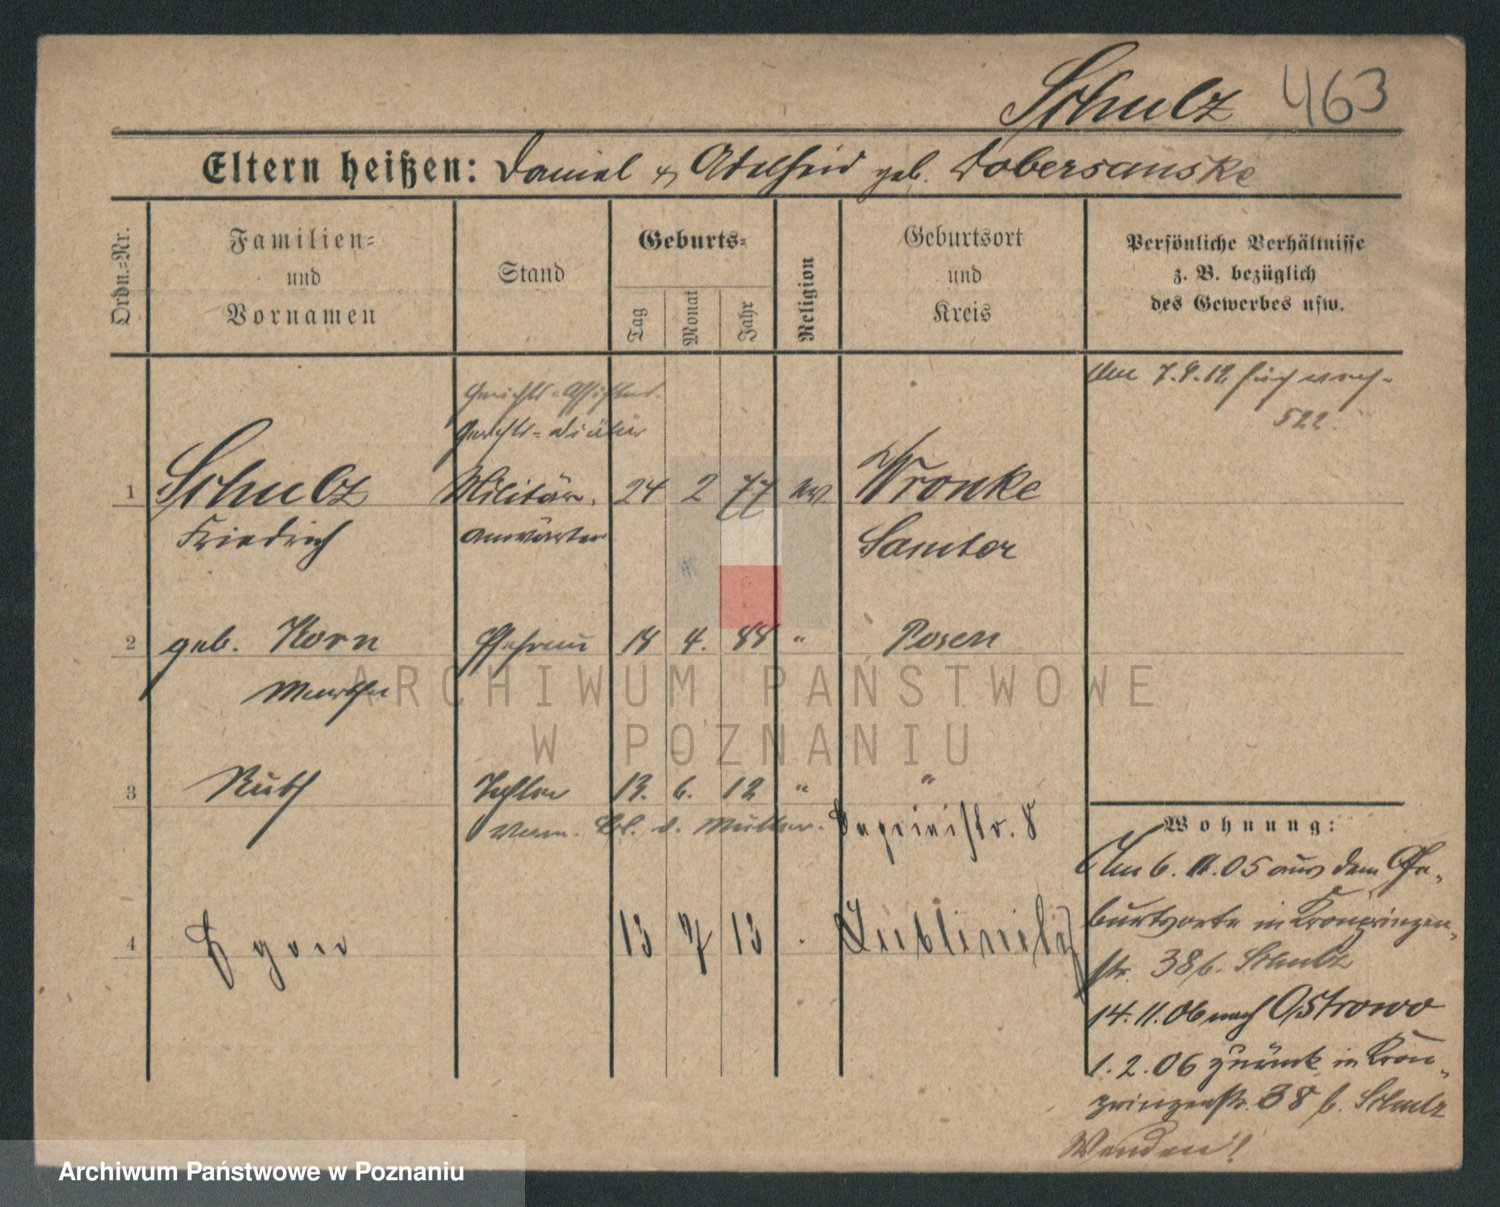 Schulz 463
Eltern heißen: Daniel & Adelheid geb. Dobersanske
Ordn.-Nr.
Familien-
und
Vornamen
Stand
Geburts-
Tag
Monat
Jahr
Religion
Geburtsort
und
Kreis
Persönliche Verhältnisse
z. B. bezüglich
des Gewerbes usw.
Am 7.9.12
522.
Gerichts-Assistent.
Gerichts-Diätar
1 Schulz Militär- 24 2 77 ev Wronke
Friedrich anwärter Samter
2 geb. Korn Ehefrau 18 4. 88 " Posen
Martha
3 Ruth Tochter 13. 6. 12 " "
d. Mutter. Caprivistr. 8
4 Egon 13 7 13 . Lublinitz
Wohnung:
Am 6. 11. 05 aus dem Ge-
burtsorte in Kronprinzen-
str. 38 b. Schulz
14. 11. 06 nach Ostrowo
1. 2. 06 zurück in Kron-
prinzenstr. 38 b. Schulz
Wenden!
ARCHIWUM PAŃSTWOWE
W POZNANIU
Archiwum Państwowe w Poznaniu